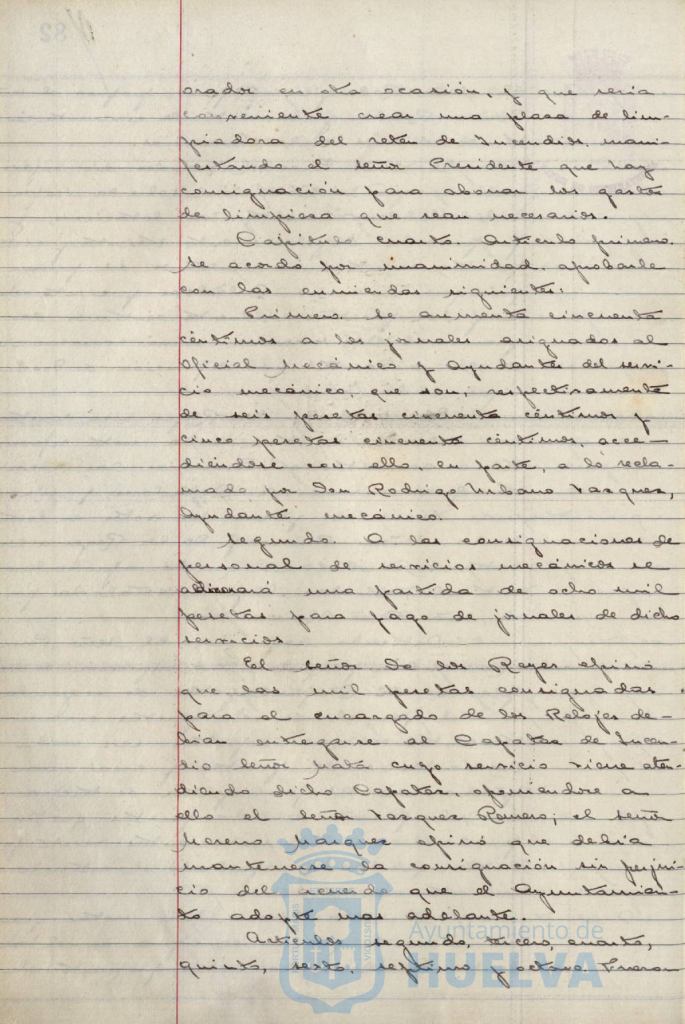 orador en otra ocasión, y que seria
conveniente crear una plaza de lim-
piadora del reten de Incendios, mani-
festando el señor Presidente que hay
consignación para abonar los gastos
de limpieza que sean necesarios.
Capitulo cuarto. Articulo primero.
Se acordo por unanimidad aprobarle
con las enmiendas siguientes:
Primero. Se aumenta cincuenta
céntimos a los jornales asignados al
Oficial Mecánico y Ayudantes del servi-
cio mecánico, que son, respectivamente
de seis pesetas cincuenta céntimos y
cinco pesetas cincuenta céntimos, acce-
diéndose con ello, en parte, a lo recla-
mado por Don Rodrigo Urbano Vazquez,
Ayudante mecánico.
Segundo. A las consignaciones de
personal de servicios mecánicos se
adicionará una partida de ocho mil
pesetas para pago de jornales de dicho
servicios
El señor De los Reyes opinó
que las mil pesetas consignadas
para el encargado de los Relojes de-
bian entregarse al Capataz de Incen-
dio Señor Mata cuyo servicio viene aten-
diendo dicho Capataz, oponiendose a
ello el Señor Vazquez Romero; el señor
Moreno Marquez opinó que debia
mantenerse la consignación sin perjui-
cio del acuerdo que el Ayuntamien-
to adopte mas adelante.
Articulos segundo, tercero, cuarto,
quinto, sexto, septimo y octavo. Fueron
Ayuntamiento de
HUELVA
82